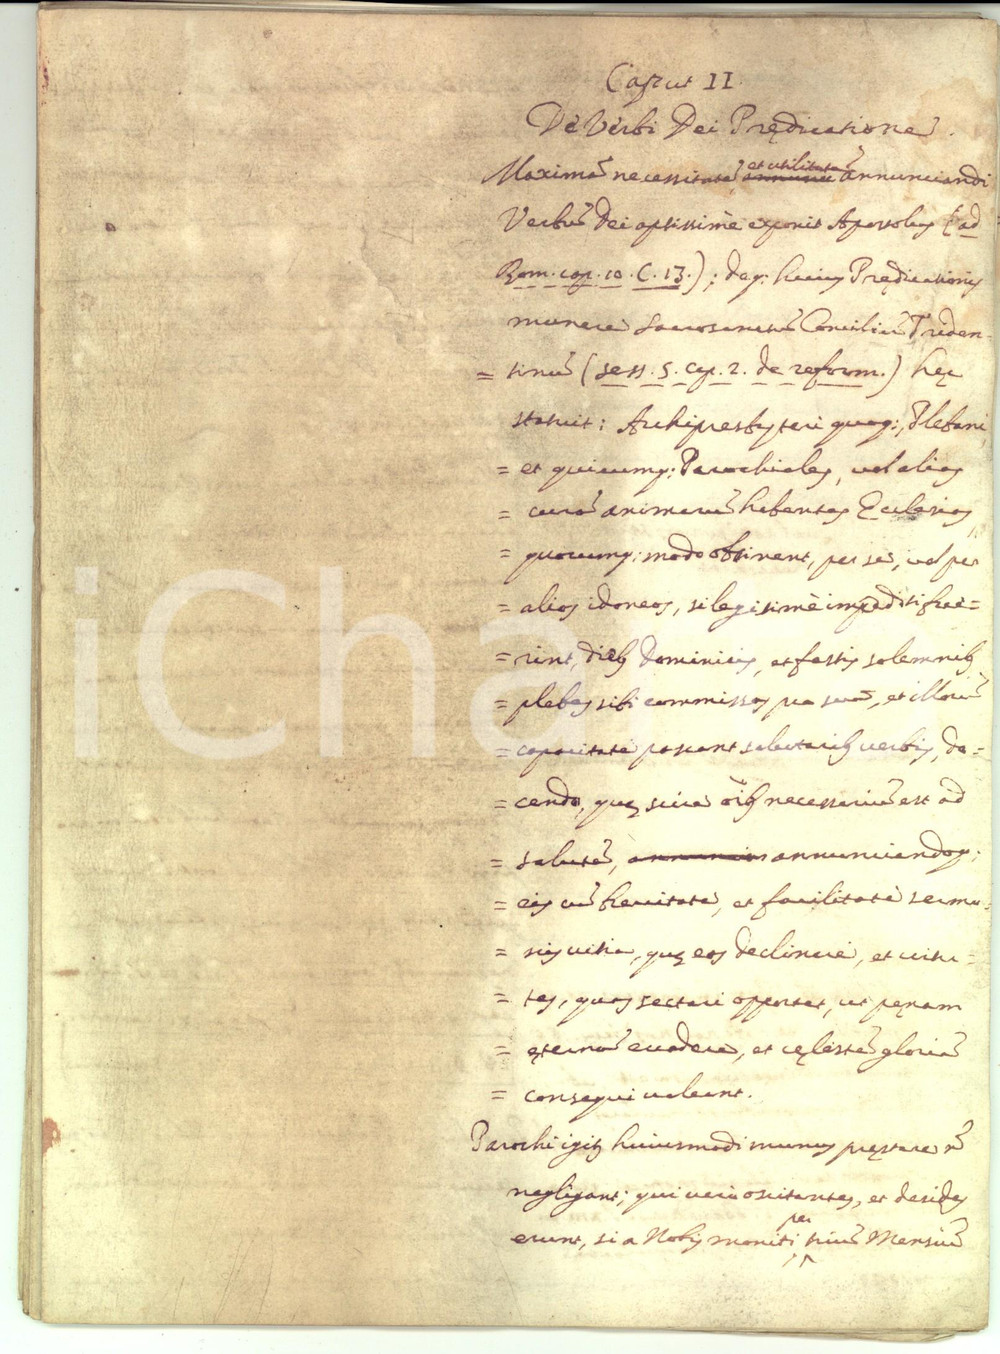 Caput II.
De Verbi Dei Prędicatione.
Maximã necessitatẽ et utilitatẽ annunciandi
Verbũ Dei aptissimè exponit Apostolus (ad
Rom. cap. 10. C. 13.); deq; huius Prędicationis
munere Sacrosanctũ Conciliũ Triden-
= tinũ (sess. 5. cap. 2. de reform.) hęc
statuit: Archipresbyteri quoq;, Plebani,
= et quicumq; Parochiales, vel alias
= curã animarũ habentes Ecclesias,
= quocumq; modo obtinent, per se, vel per
= alios idoneos, si legitimè impediti fue=
= rint, dieb9 Dominicis, et festis solemnib9
= plebes sibi commissas pro suã, et illorũ
= capacitate pascant salutarib9 verbis, do=
= cendo, quę scire õib9 necessariũ est ad
= salutẽ, annunciandoq;
= eis cũ brevitate, et facilitate sermo-
= nis vitia, quę eos declinare, et virtu=
= tes, quas sectari oportet, ut pęnam
= ęternã evadere, et cęlestẽ gloriã
= consequi valeant.
Parochi igitr huiusmodi munus pręstare nõ
negligant; qui verò oscitantes, et desides
erunt, si a Nobis moniti per triũ Mensiũ
iCha